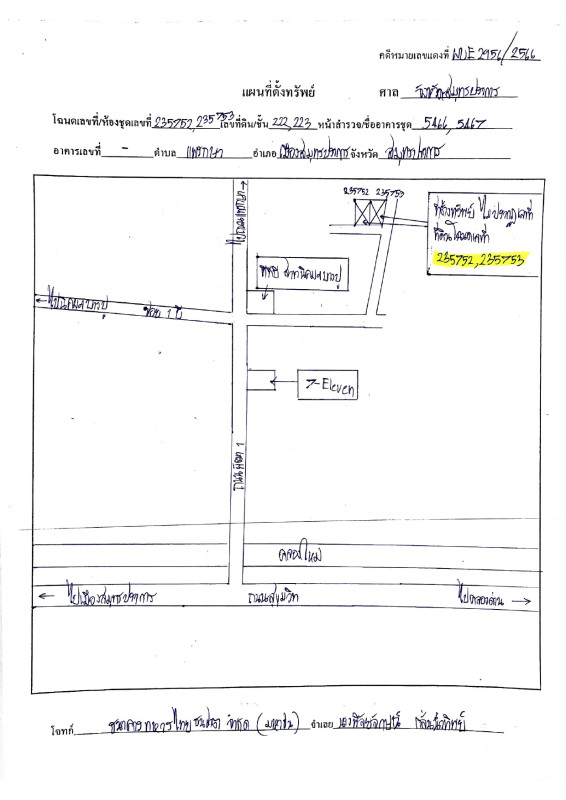 คดีหมายเลขแดงที่ ผบE 2956/2566
แผนที่ตั้งทรัพย์ ศาล จังหวัดสมุทรปราการ
โฉนดเลขที่/ห้องชุดเลขที่ 235752, 235753 เลขที่ดิน/ชั้น 222, 223 หน้าสำรวจ/ชื่ออาคารชุด 5466, 5467
อาคารเลขที่ - ตำบล แพรกษา อำเภอ เมืองสมุทรปราการ จังหวัด สมุทรปราการ
235752 235753
ที่ตั้งทรัพย์ ไม่ปรากฏเลขที่
ที่ดินโฉนดเลขที่
235752, 235753
ไปถนนแพรกษา
สาขานิคมบางปู
ไปนิคมบางปู ซอย 1 ปี
7-Eleven
ถนนพัฒนา 1
คลองใหม่
ไปเมืองสมุทรปราการ ถนนสุขุมวิท ไปคลองด่าน
โจทก์ ธนาคารทหารไทยธนชาต จำกัด (มหาชน) จำเลย